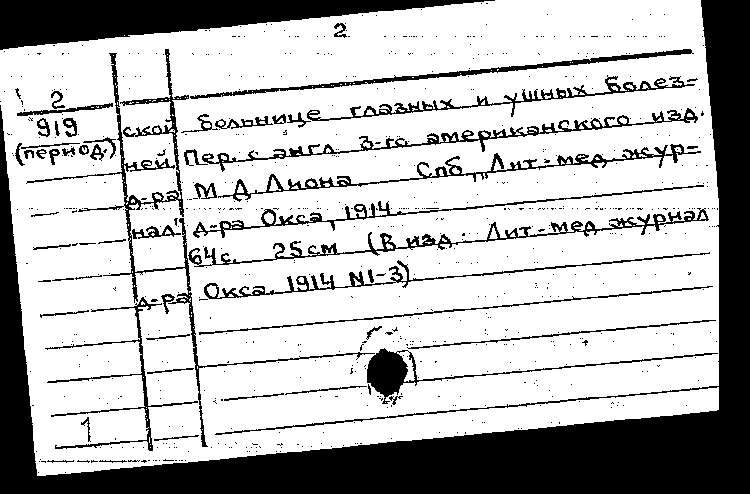 2
2
919
(период.)
ской больнице глазных и ушных болез=
ней. Пер. с англ. 3-го американского изд.
д-ра М. Д. Лиона. Спб, „Лит-мед. жур=
нал" д-ра Окса, 1914.
64с. 25см (В изд: Лит-мед журнал
д-ра Окса. 1914 N1-3)
1